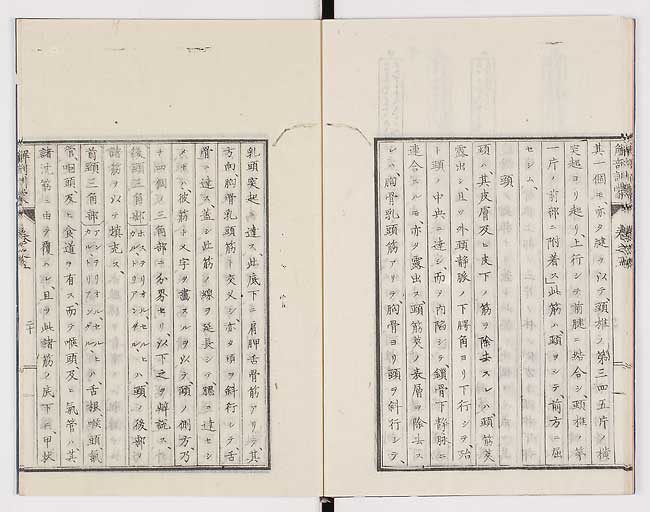 其一個モ、亦タ腱ヲ以テ、頸椎ノ第三四五片ノ横
突起ヨリ起リ、上行シテ前腱ニ搭合シ、頸椎ノ第
一片ノ前部ニ附着ス」此筋ハ頭ヲシテ、前方ニ屈
セシム、
頸
頸ハ、其皮膚及ヒ皮下ノ筋ヲ除去スレハ、頸筋莢
露出シ、且ツ外頸静脈ノ下腭角ヨリ下行シテ、殆
ト頸ノ中央ニ達シ、而ヲ内陥シテ鎖骨下静脈ニ
連合スルモ、亦タ露出ス、頸筋莢ノ表層ヲ除去ス
レハ、胸骨乳頭筋アリテ、胸骨ヨリ頸ヲ斜行シテ、
乳頭突起ニ達ス、此底下ニ肩胛舌骨筋アリテ其
方向胸骨乳頭筋ト交叉シ亦タ頸ヲ斜行シテ舌
骨ニ達ス、蓋シ此筋ノ線ヲ延長シテ、腮ニ達セシ
メハ、彼筋ト乂字ヲ畫スルヲ以テ、頸ノ側方乃
チ四個ノ三角部ニ分界セリ、以下之ヲ辨説ス、
後頸三角部 ハ、頸ノ後部ヲ
諸筋ヲ以テ填充ス、
首頸三角部 ハ、舌根、喉頭、氣
管、咽頭及ヒ食道ヲ有ス、而テ喉頭及ヒ氣管ハ其
諸沈筋ニ由テ覆ハレ、且ツ此諸筋ノ底下ニ、甲状
解剖訓蒙
二十